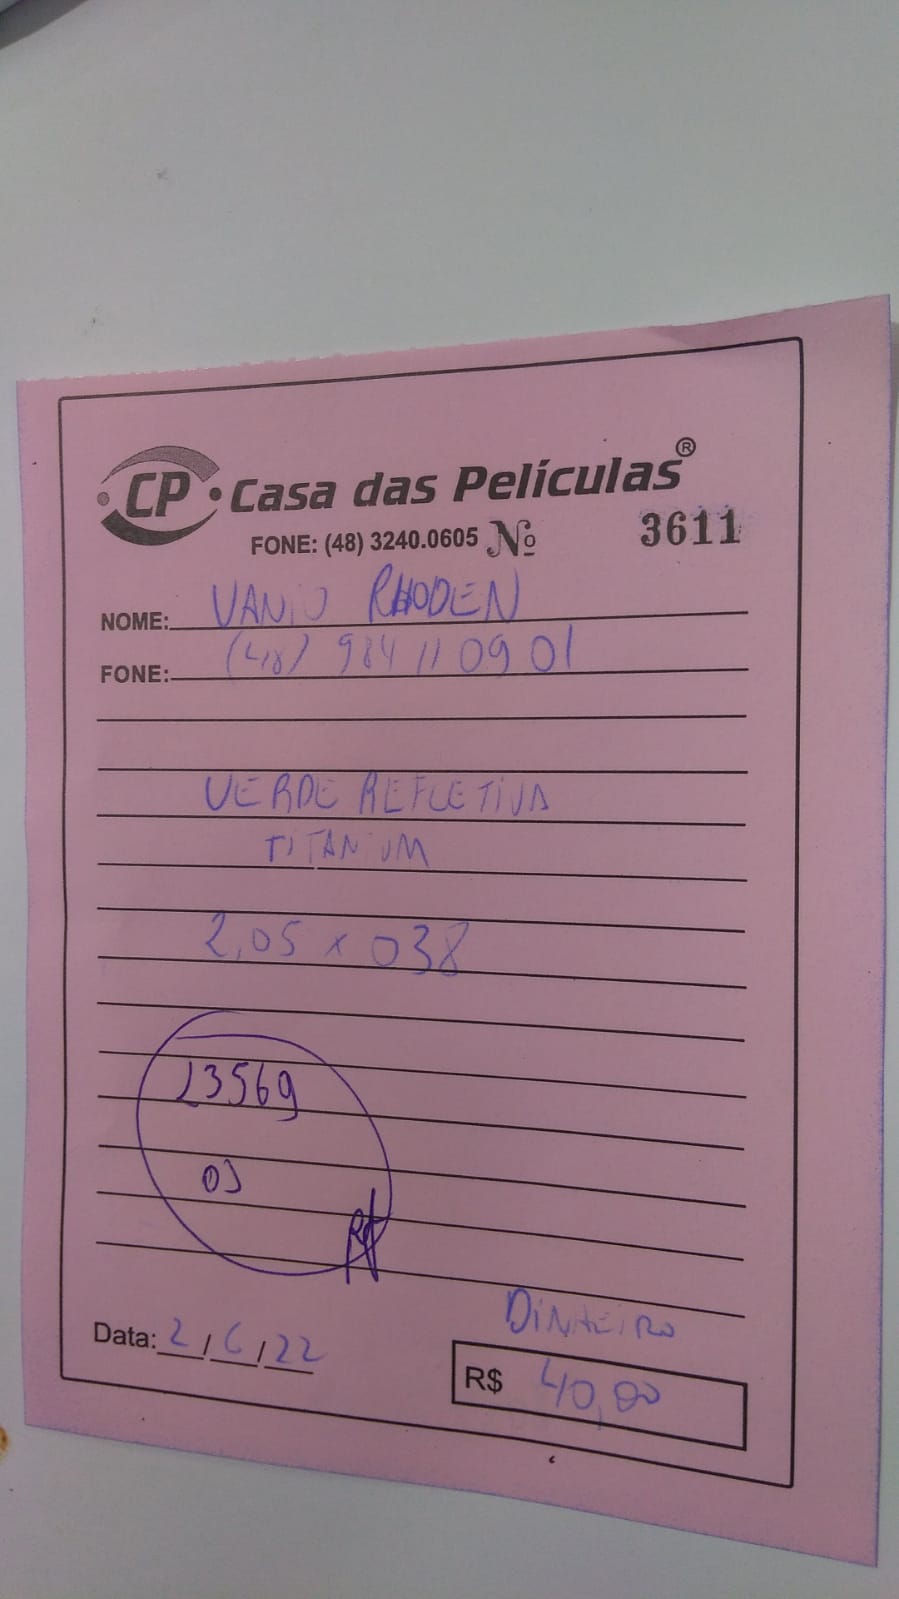 CP Casa das Películas®
FONE: (48) 3240.0605 Nº 3611
NOME: VANIO RHODEN
FONE: (48) 984 11 09 01
VERDE REFLETIVA
TITANIUM
2,05 x 038
23569
03
DINHEIRO
Data: 2/6/22
R$ 40,00